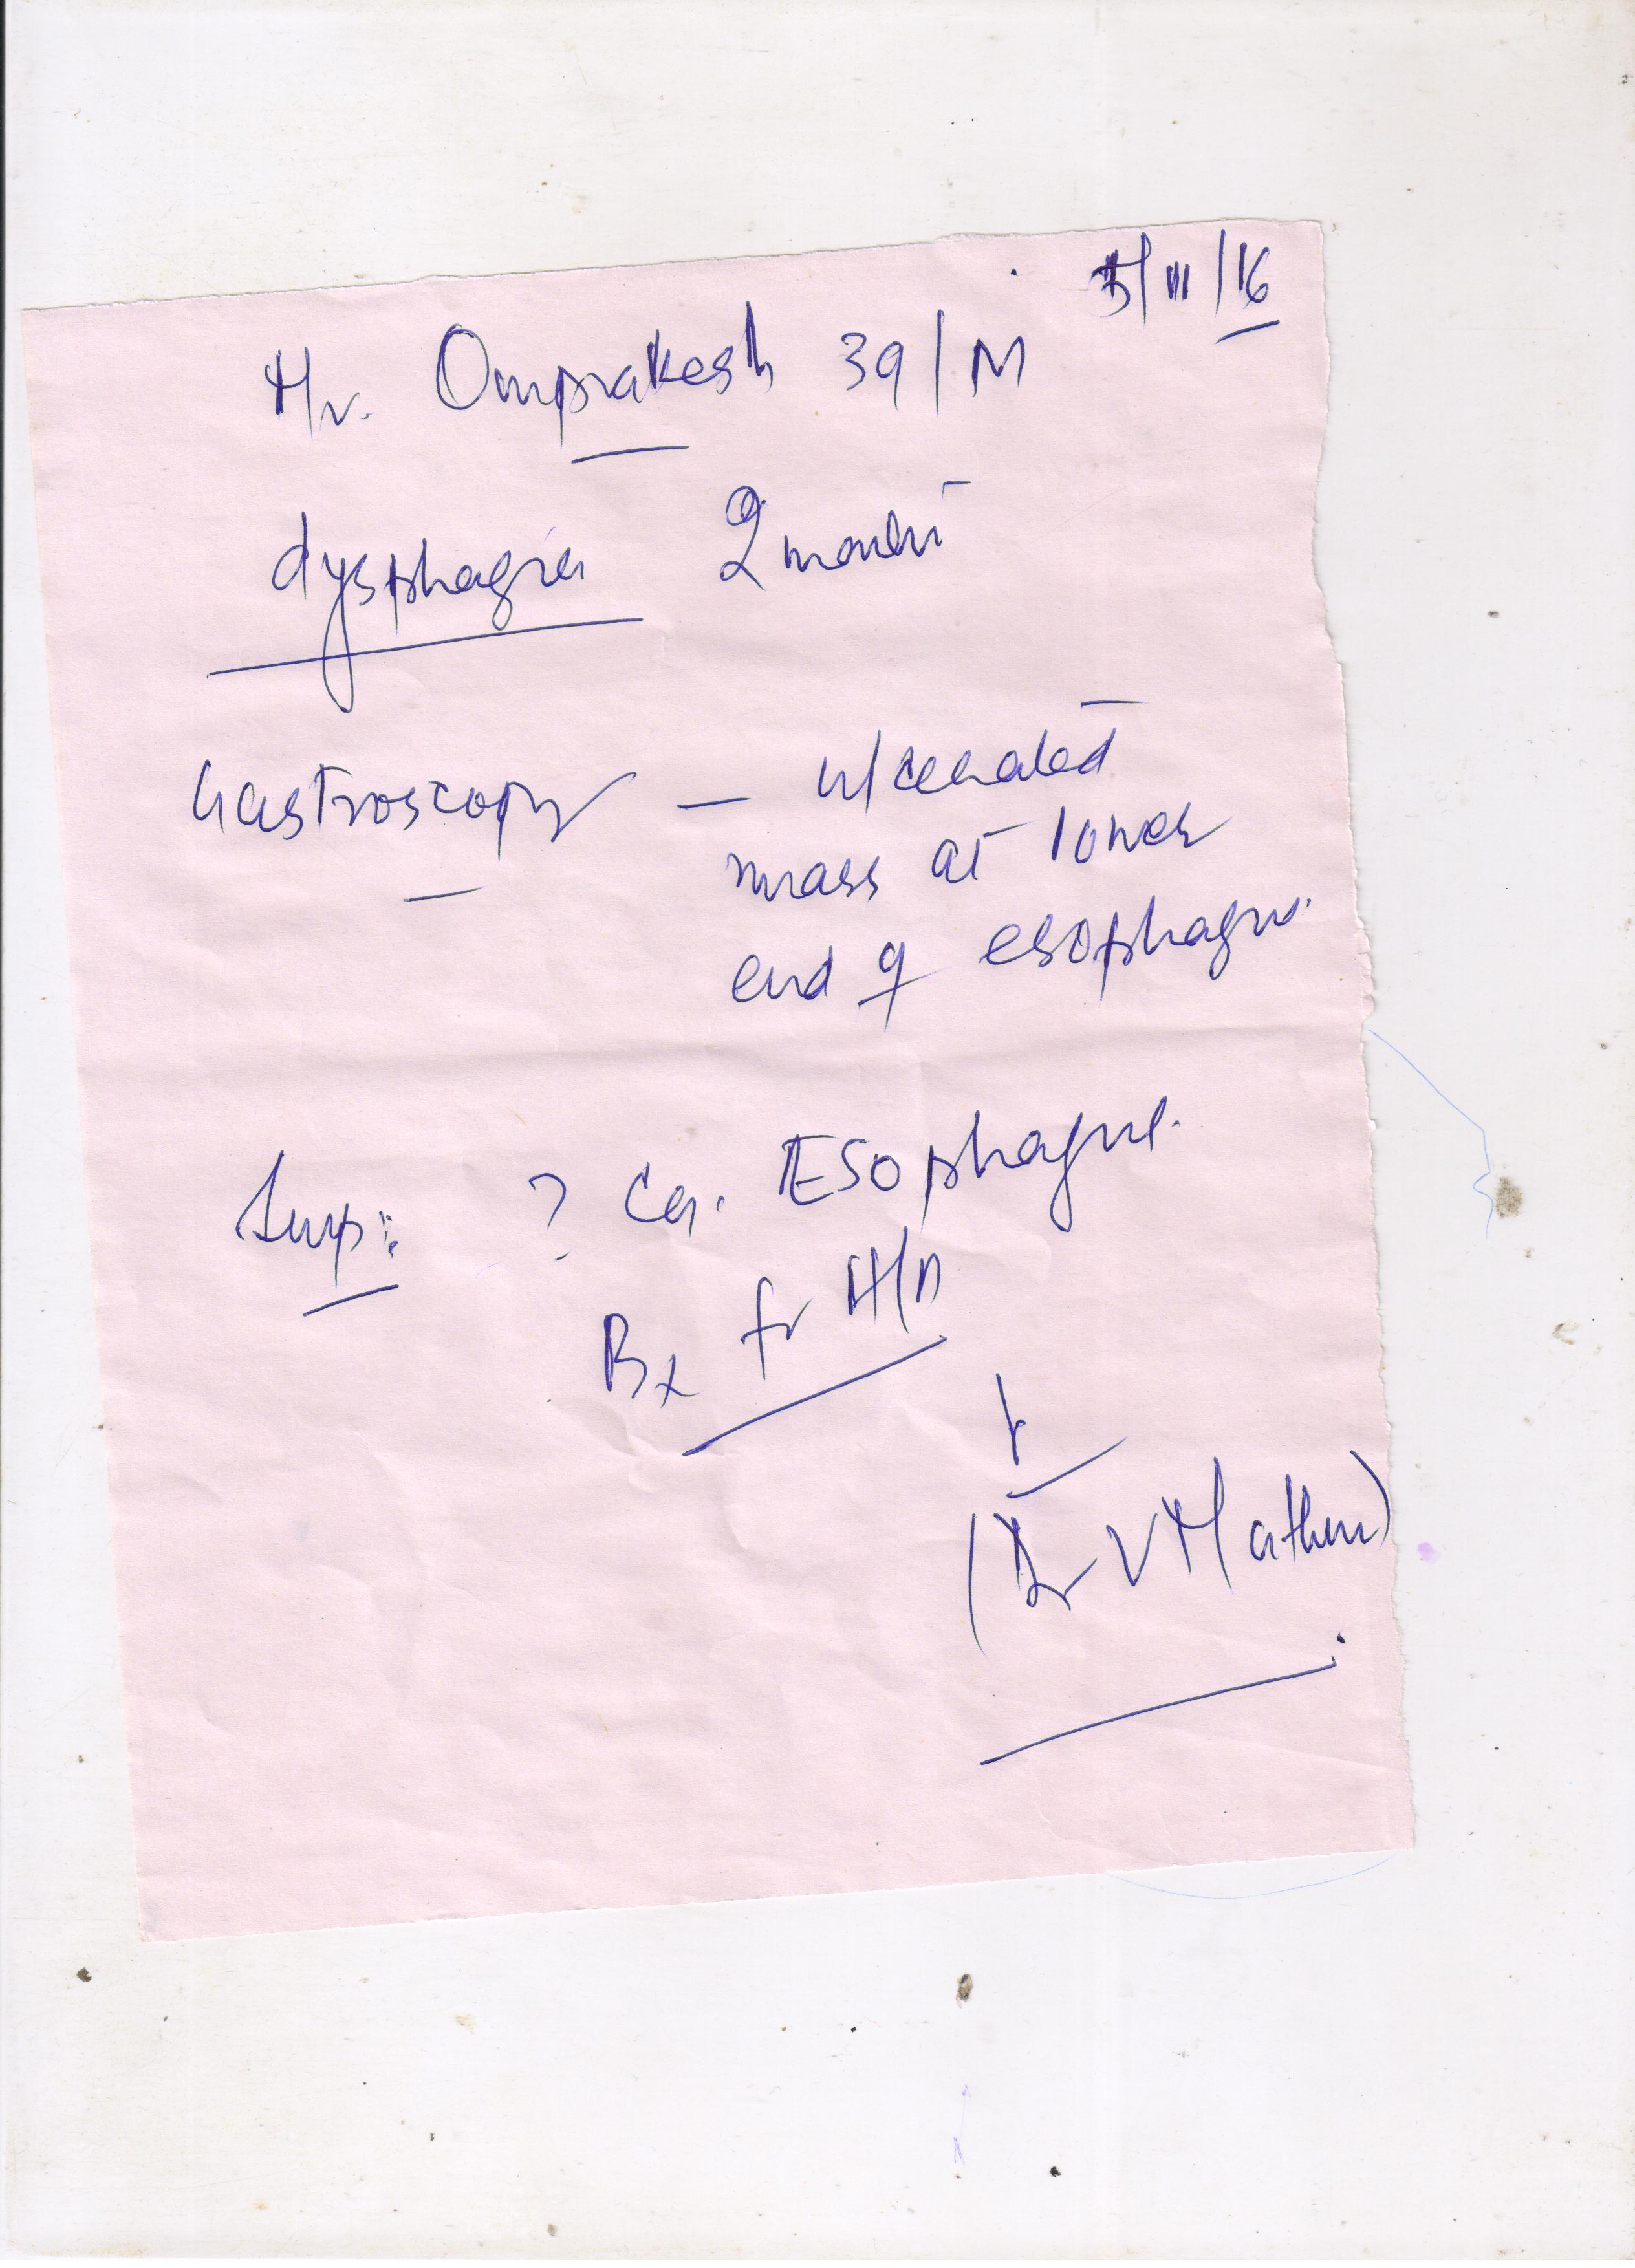 5/11/16
Mr. Omprakash 39/M
dysphagia 2 months
Gastroscopy – ulcerated
mass at lower
end of esophagus.
Imp: ? Ca. Esophagus.
Bx for H/P
(Dr V Mathur)